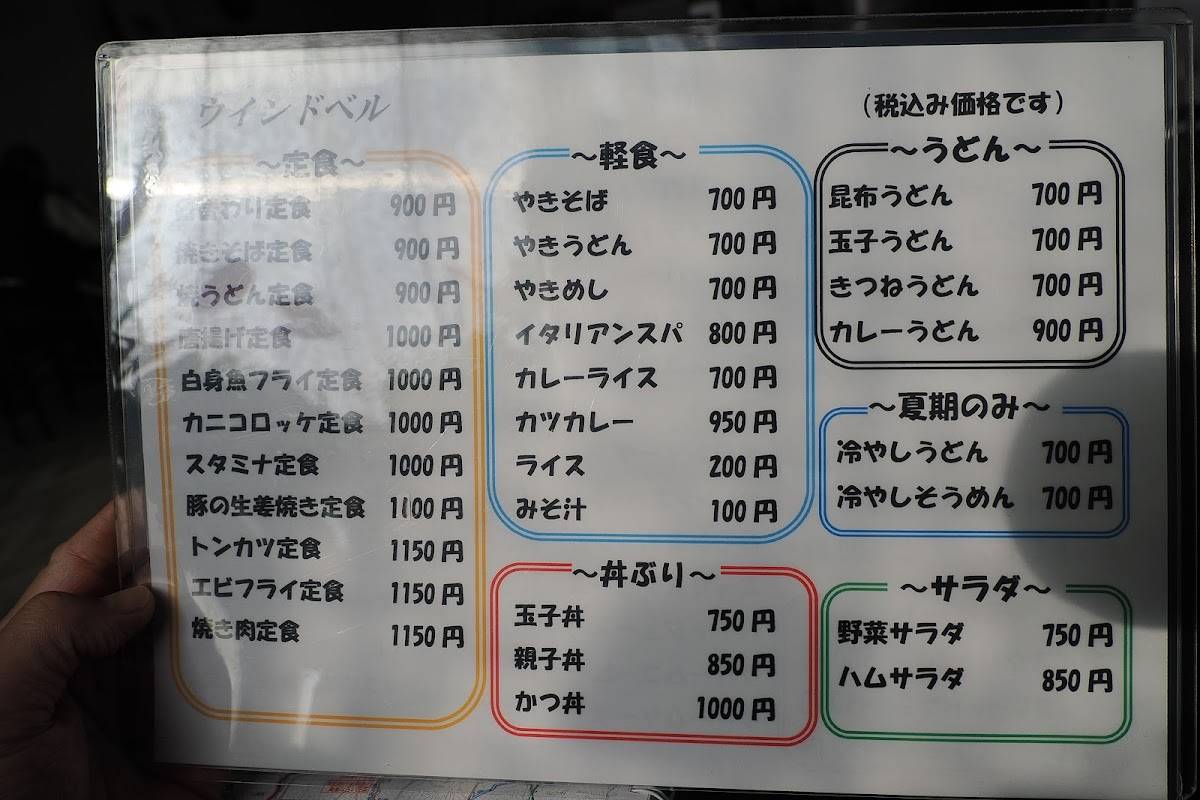 ウインドベル
(税込み価格です)
～定食～
日替わり定食 900円
焼きそば定食 900円
焼うどん定食 900円
唐揚げ定食 1000円
白身魚フライ定食 1000円
カニコロッケ定食 1000円
スタミナ定食 1000円
豚の生姜焼き定食 1100円
トンカツ定食 1150円
エビフライ定食 1150円
焼き肉定食 1150円
～軽食～
やきそば 700円
やきうどん 700円
やきめし 700円
イタリアンスパ 800円
カレーライス 700円
カツカレー 950円
ライス 200円
みそ汁 100円
～丼ぶり～
玉子丼 750円
親子丼 850円
かつ丼 1000円
～うどん～
昆布うどん 700円
玉子うどん 700円
きつねうどん 700円
カレーうどん 900円
～夏期のみ～
冷やしうどん 700円
冷やしそうめん 700円
～サラダ～
野菜サラダ 750円
ハムサラダ 850円